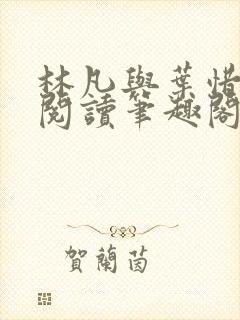 林凡與葉惜
閱讀筆趣閣
賀蘭茵